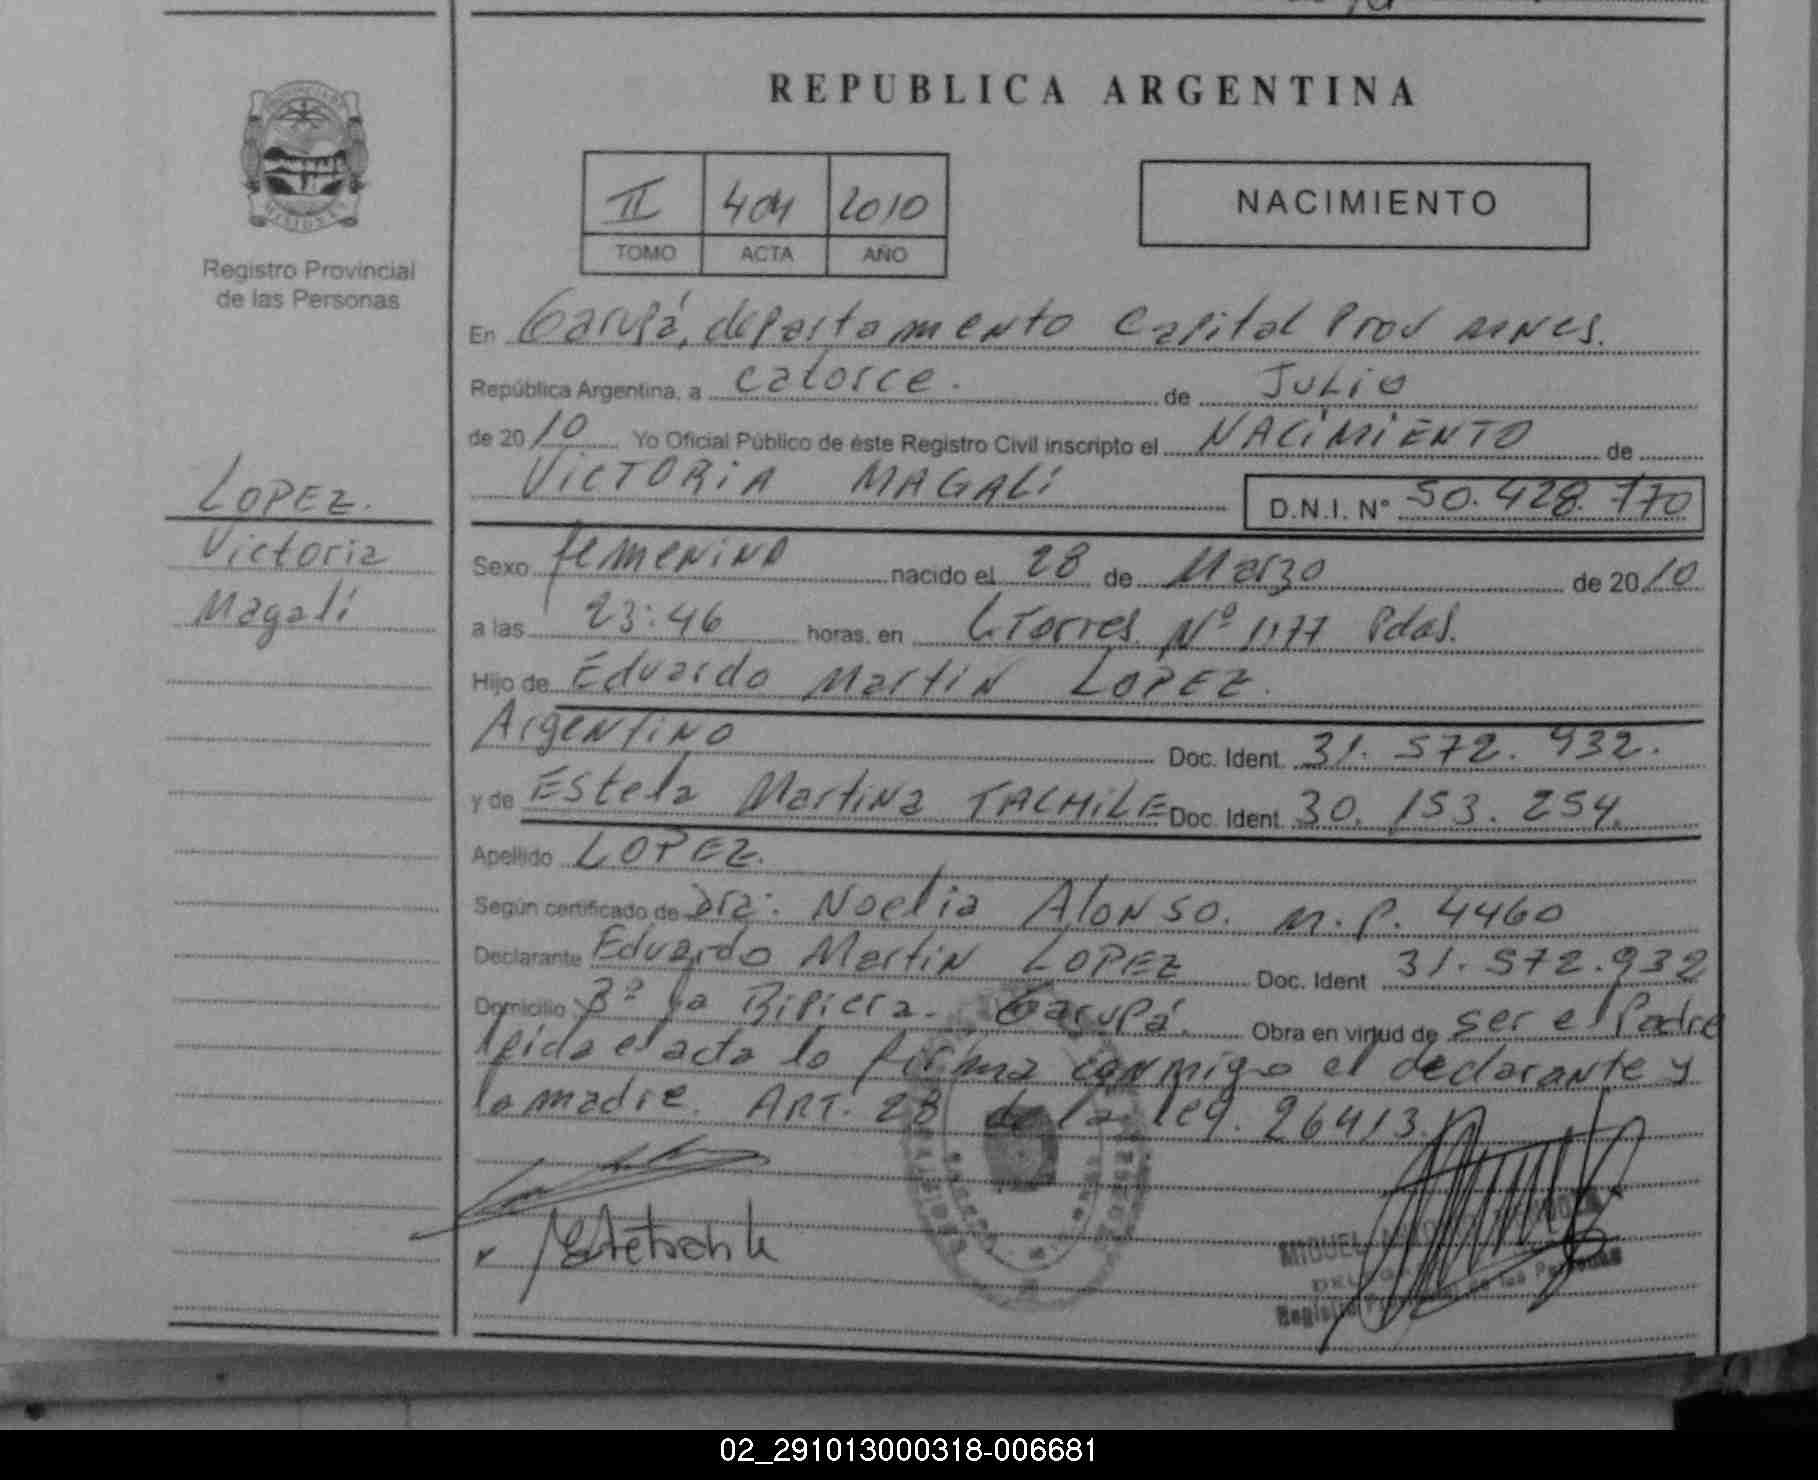 REPUBLICA ARGENTINA
II 404 2010
TOMO ACTA AÑO
NACIMIENTO
Registro Provincial
de las Personas
LOPEZ.
Victoria
Magalí
En Garupá, departamento Capital Prov MNES.
República Argentina, a catorce. de JULIO
de 2010 Yo Oficial Público de éste Registro Civil inscripto el NACIMIENTO de
VICTORIA MAGALI D.N.I. N° 50.428.770
Sexo femenino nacido el 28 de Marzo de 2010
a las 23:46 horas, en L. Torres Nº 1177 Pdas.
Hijo de Eduardo Martin LOPEZ.
Argentino Doc. Ident. 31.572.932.
y de Estela Martina TACHILE Doc. Ident. 30.153.254.
Apellido LOPEZ.
Según certificado de Dra: Noelia Alonso. M.P. 4460
Declarante Eduardo Martin LOPEZ Doc. Ident 31.572.932
Domicilio Bº La Garupá. Obra en virtud de ser el Padre
leida el acta lo firma conmigo el declarante y
la madre. ART. 28 de la ley. 26413.
MIGUEL
Registro de las Personas
02_291013000318-006681